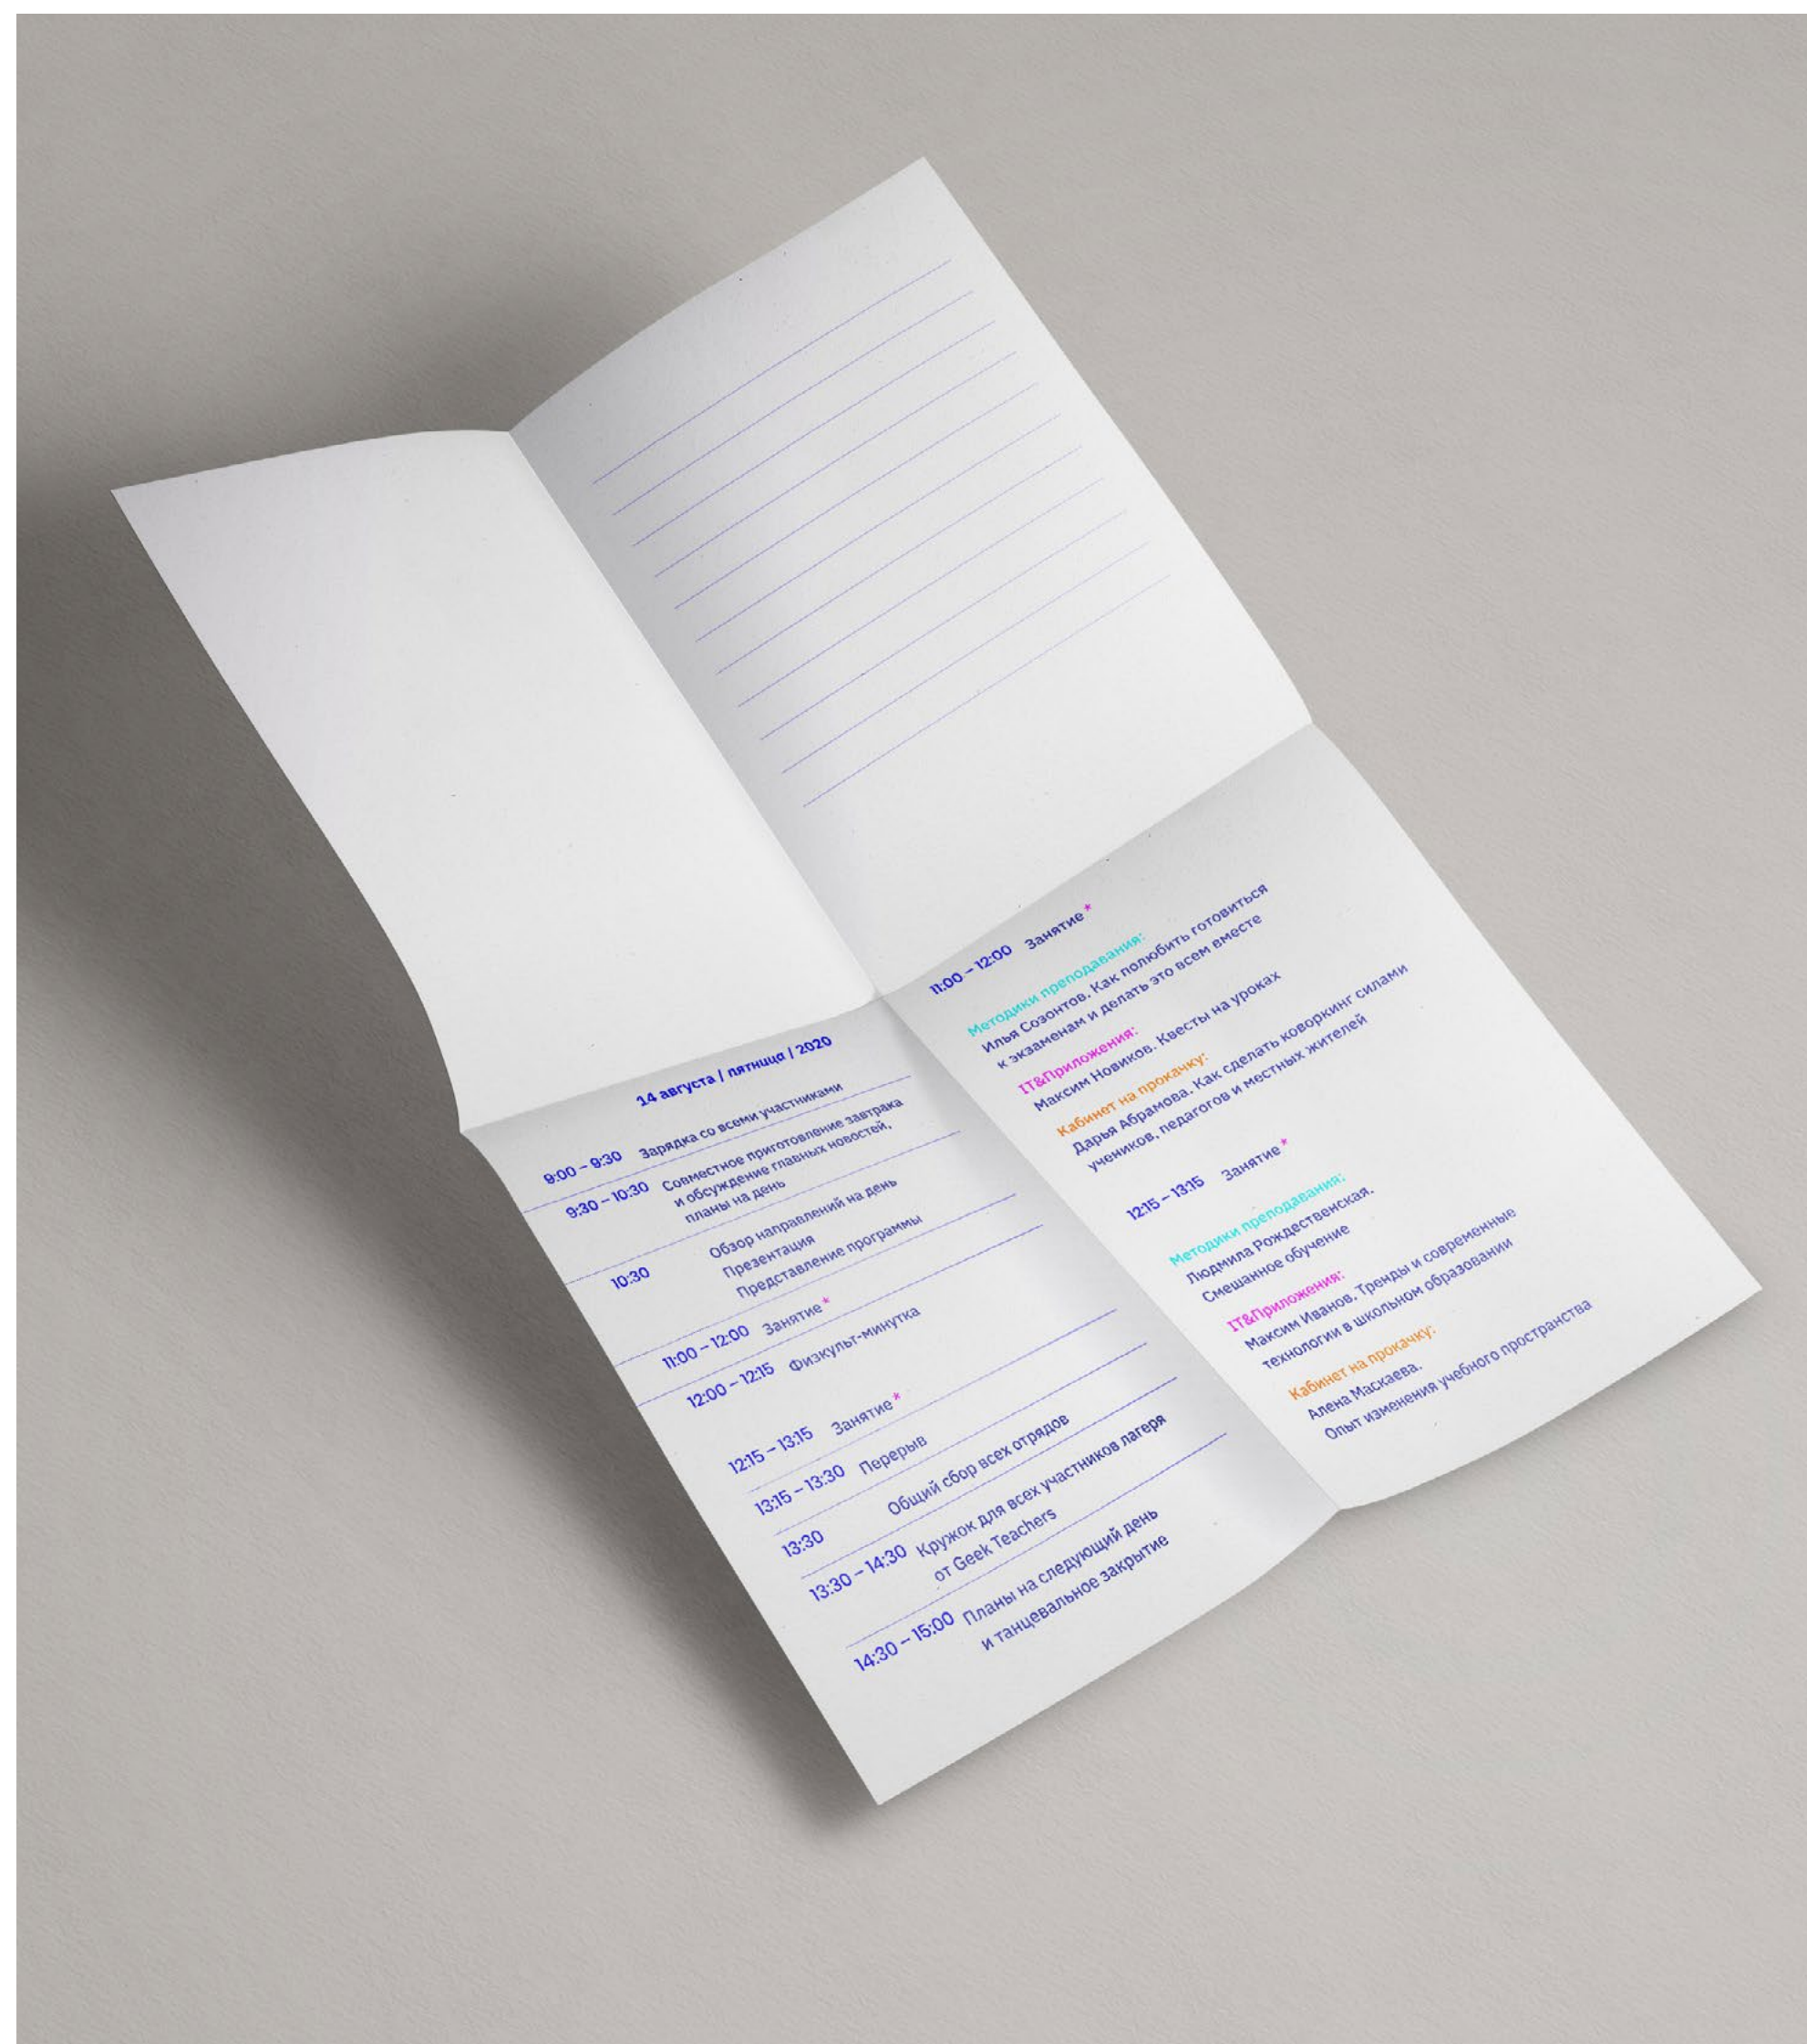 14 августа / пятница / 2020
9:00 – 9:30 Зарядка со всеми участниками
9:30 – 10:30 Совместное приготовление завтрака
и обсуждение главных новостей,
планы на день
10:30 Обзор направлений на день
Презентация
Представление программы
11:00 – 12:00 Занятие*
12:00 – 12:15 Физкульт-минутка
12:15 – 13:15 Занятие*
13:15 – 13:30 Перерыв
13:30 Общий сбор всех отрядов
13:30 – 14:30 Кружок для всех участников лагеря
от Geek Teachers
14:30 – 15:00 Планы на следующий день
и танцевальное закрытие
11:00 – 12:00 Занятие*
Методики преподавания:
Илья Созонтов. Как полюбить готовиться
к экзаменам и делать это всем вместе
IT&Приложения:
Максим Новиков. Квесты на уроках
Кабинет на прокачку:
Дарья Абрамова. Как сделать коворкинг силами
учеников, педагогов и местных жителей
12:15 – 13:15 Занятие*
Методики преподавания:
Людмила Рождественская.
Смешанное обучение
IT&Приложения:
Максим Иванов. Тренды и современные
технологии в школьном образовании
Кабинет на прокачку:
Алена Маскаева.
Опыт изменения учебного пространства